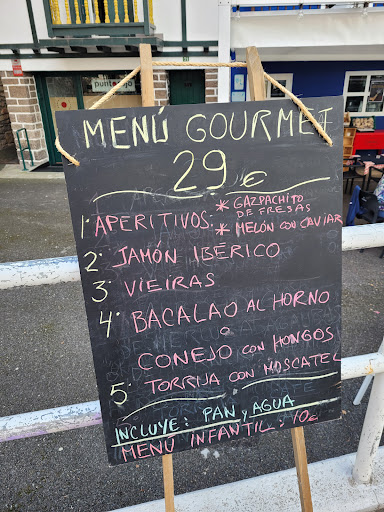 puntogio
MENÚ GOURMET
29 €
1º APERITIVOS: * GAZPACHITO DE FRESAS
* MELÓN CON CAVIAR
2º JAMÓN IBÉRICO
3º VIEIRAS
4º BACALAO AL HORNO
O
CONEJO CON HONGOS
5º TORRIJA CON MOSCATEL
INCLUYE: PAN Y AGUA
MENÚ INFANTIL: 10€